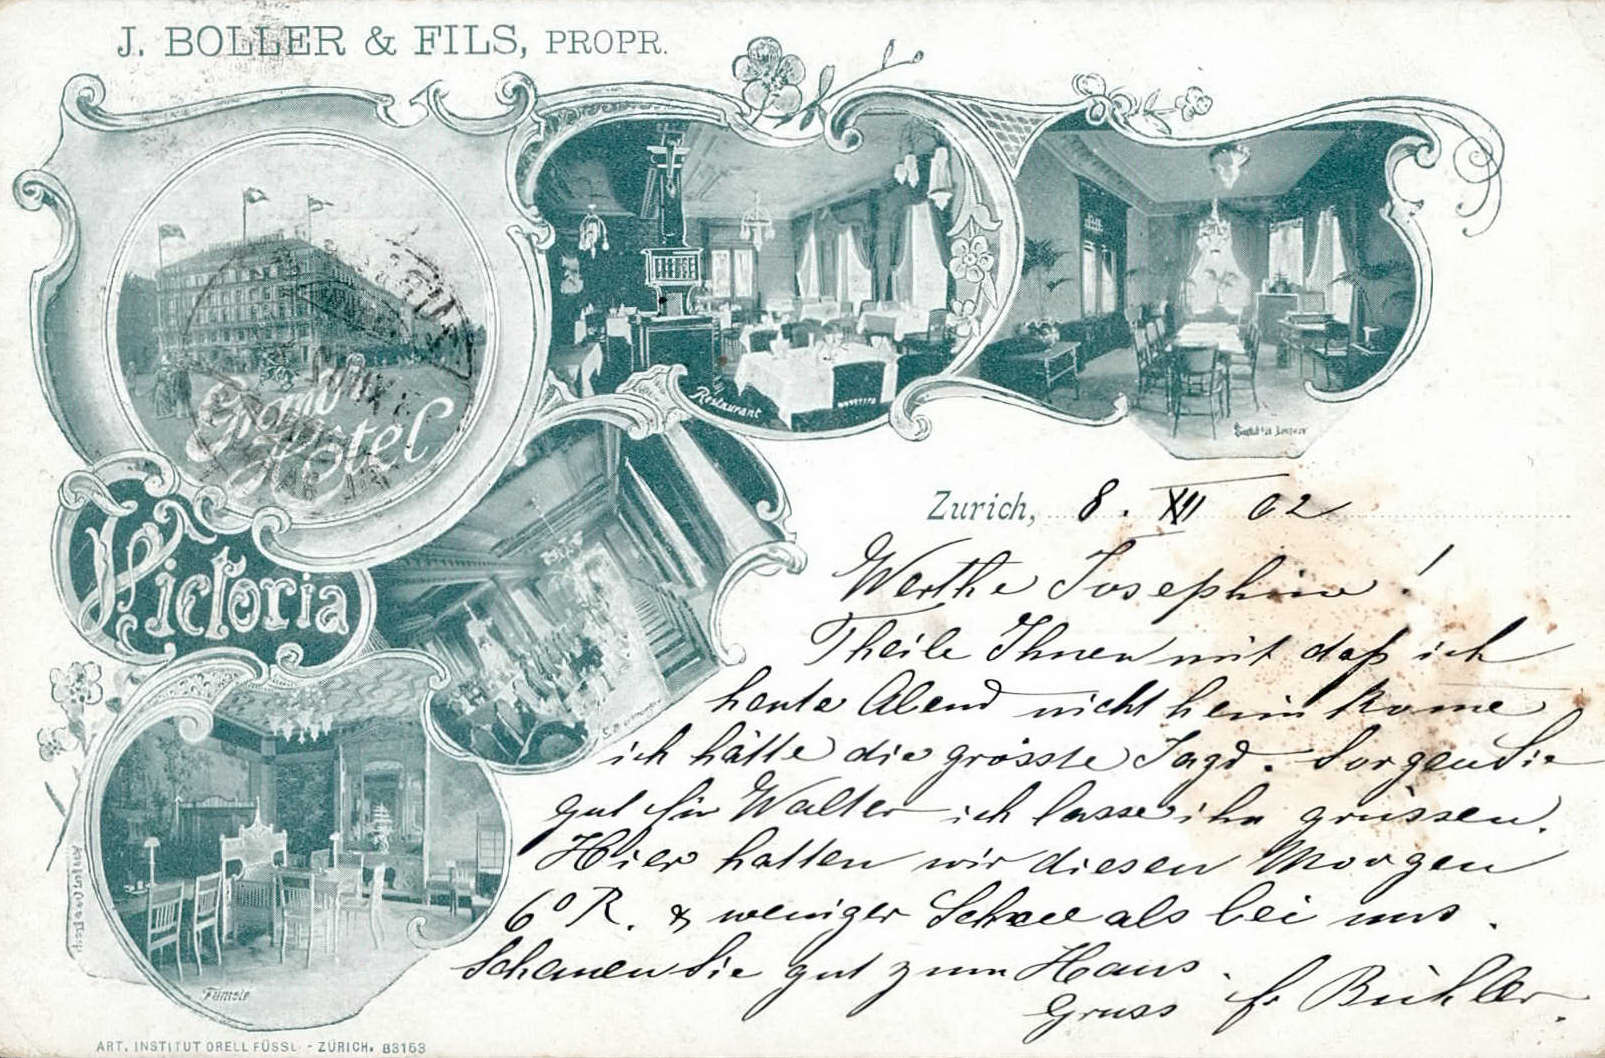 J. BOLLER & FILS, PROPR.
Grand
Hôtel
Victoria
Restaurant
Fumoir
Zurich, 8. XII 02
Werthe Josephine!
Theile Ihnen mit daß ich
heute Abend nicht heim kome
ich hätte die grösste Jagd. Sorgen Sie
gut für Walter ich lasse ihn grüssen.
Hier hatten wir diesen Morgen
6° R. & weniger Schnee als bei uns.
Schauen Sie gut zum Haus.
Gruss fr Bühler.
ART. INSTITUT ORELL FÜSSLI - ZÜRICH. 83153